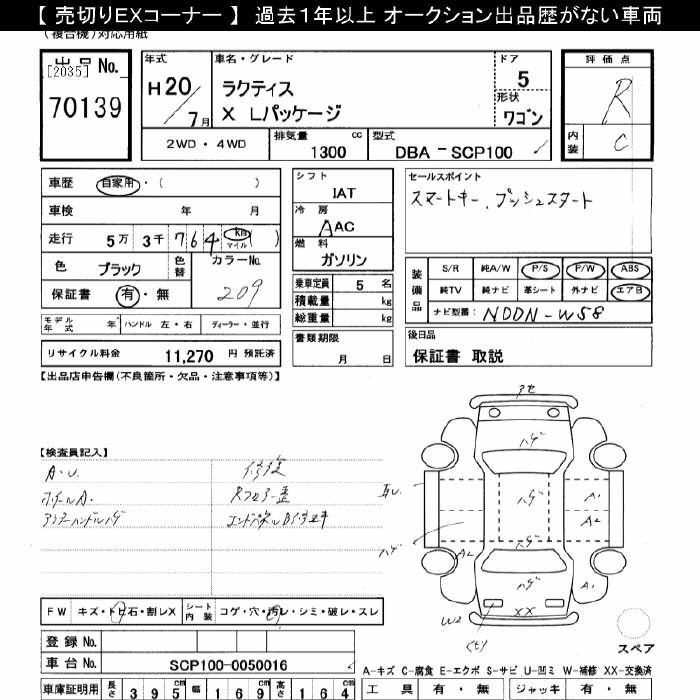 【 売切りEXコーナー 】 過去1年以上 オークション出品歴がない車両
(複合機)対応用紙
出品No.
[2035]
70139
年式
H20/7月
車名・グレード
ラクティス
X Lパッケージ
ドア
5
形状
ワゴン
評価点
R
内装
C
2WD・4WD
排気量
1300
cc
型式
DBA-SCP100
車歴
自家用・( )
車検 年 月
走行 5万 3千 764 km マイル ( )
色 ブラック
色替
カラーNo.
209
保証書 有・無
シフト
IAT
冷房
AAC
燃料
ガソリン
乗車定員 5 名
積載量 kg
総重量 kg
書類期限
月 日
セールスポイント
スマートキー、プッシュスタート
装備品
S/R 純A/W P/S P/W ABS
純TV 純ナビ 革シート 外ナビ エアB
ナビ型番: NDDN-W58
後日品
保証書 取説
モデル年式 年
ハンドル 左・右
ディーラー・並行
リサイクル料金 11,270 円 預託済
【出品店申告欄(不良箇所・欠品・注意事項等)】
【検査員記入】
A・U.
ホイールA.
アンダーハンドルハゲ
修復
Rフロアー歪
ハゲ
ハゲ
ハゲ
ハゲ
ハゲ
A2
A1
A2
A1
W2
XX
スペア
FW キズ・トビ石・割レX
シート内装 コゲ・穴・汚レ・シミ・破レ・スレ
登録No.
車台No. SCP100-0050016
A-キズ C-腐食 E-エクボ S-サビ U-凹ミ W-補修 XX-交換済
車庫証明用 長さ 395 cm 幅 169 cm 高さ 164 cm
工具 有・無 ジャッキ 有・無